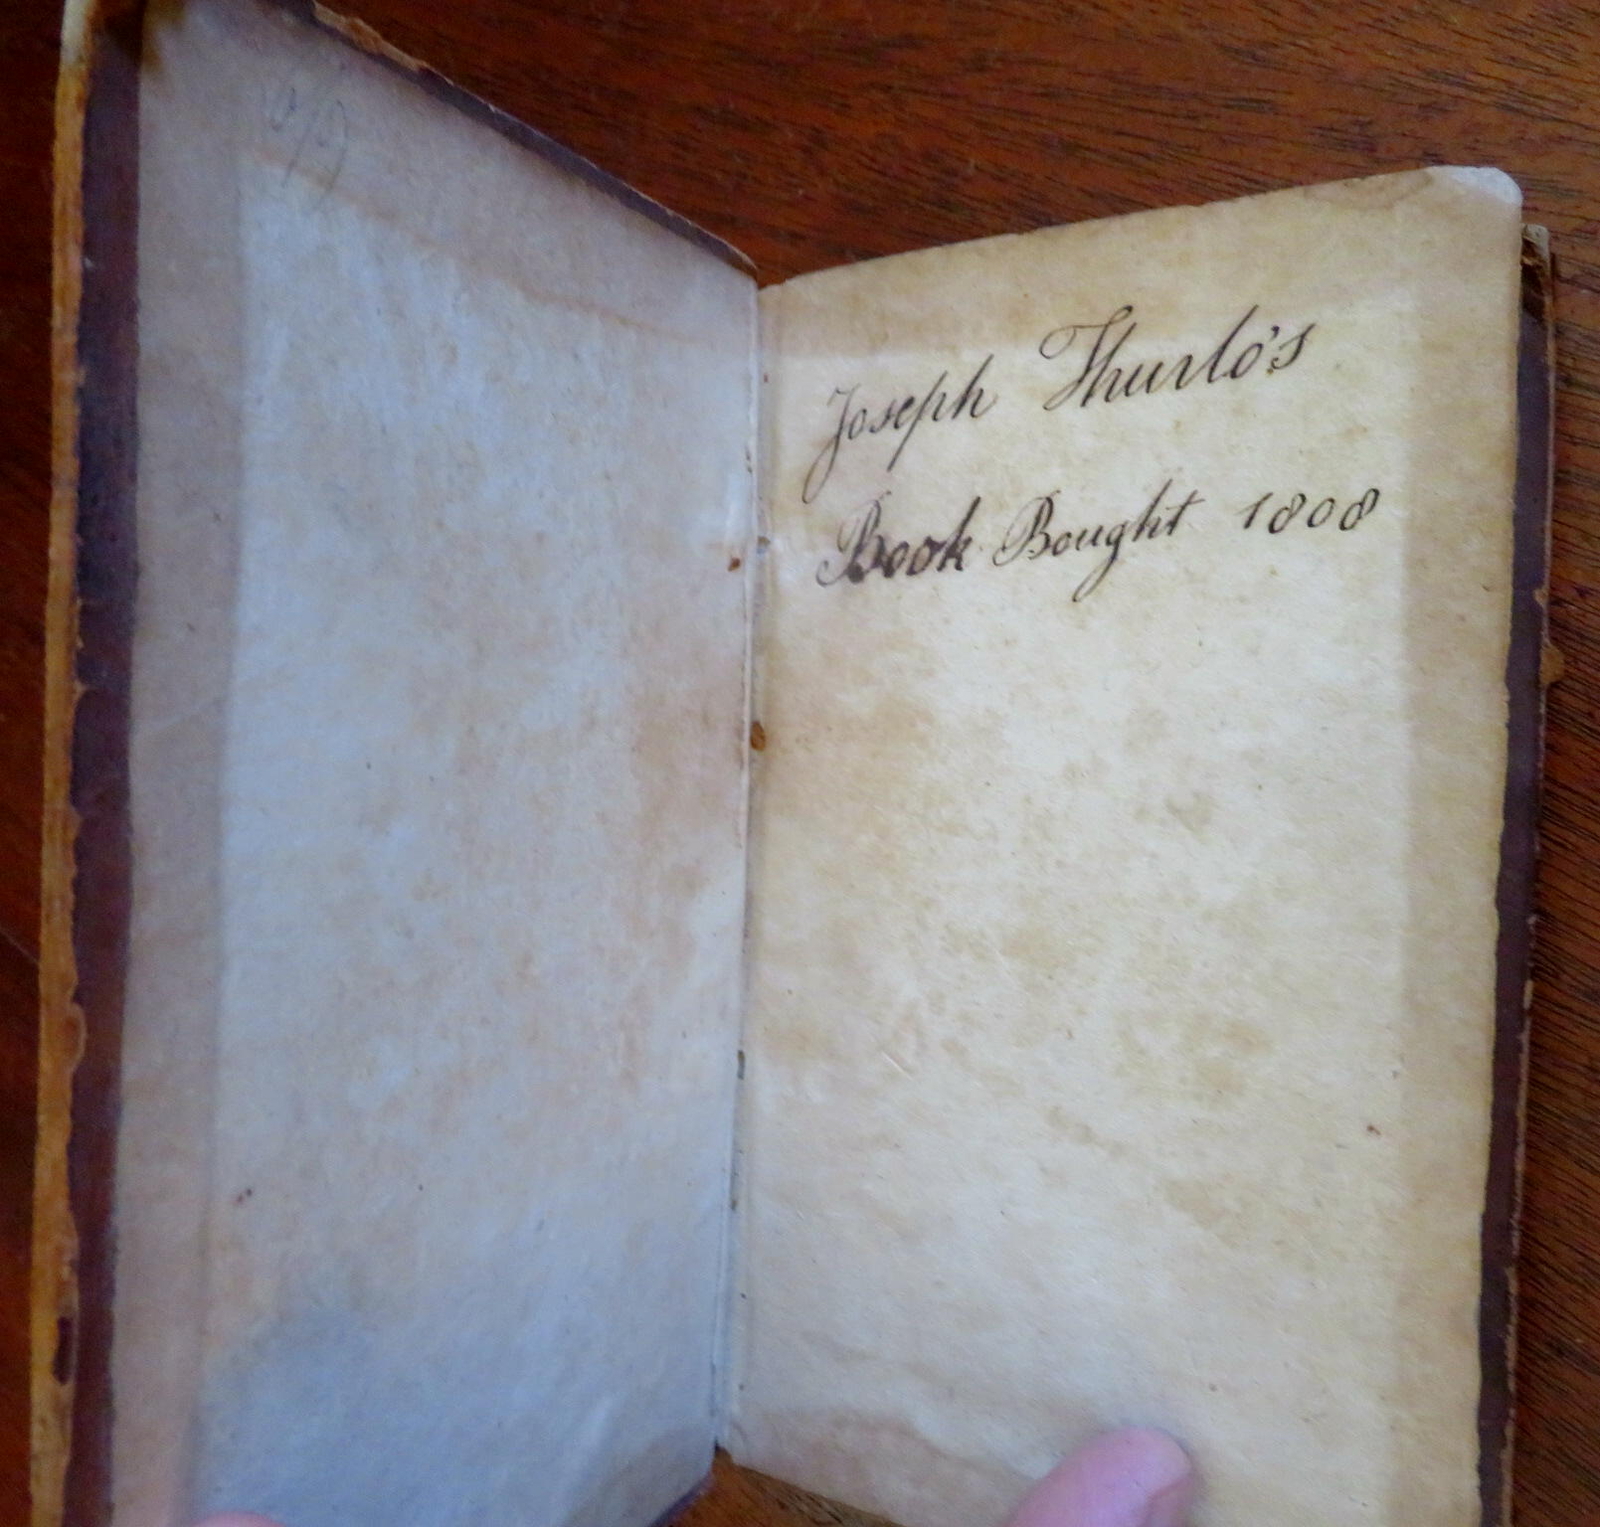 Joseph Thurlo's
Book Bought 1808